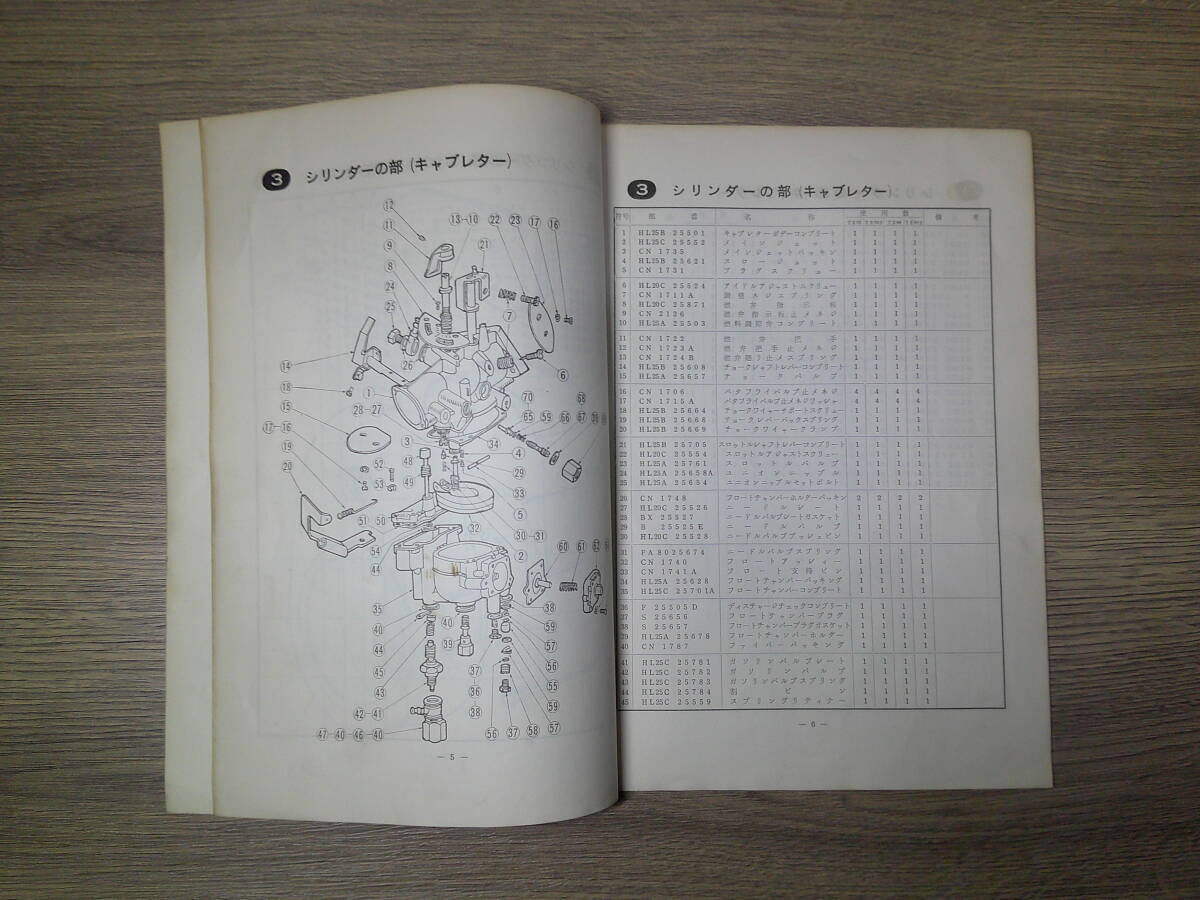 3 シリンダーの部 (キャブレター)
12
11
9
8
24
25
13-10
22
23
17
16
21
7
6
26
14
18
1
28-27
15
17-16
19
20
3
48
49
52
53
51
50
54
44
70
65
59
66
67
68
34
4
29
33
5
32
30-31
2
60
61
62
35
40
44
45
43
42-41
47-40-46-40
40
39
37
36
38
38
59
57
56
55
59
57
58
37
56
— 5 —
3 シリンダーの部 (キャブレター)
符号 部番 名称 使用数 備考
1 HL25B 25501 キャブレターボデーコンプリート 1 1 1 1
2 HL25C 25552 メインジェット 1 1 1 1
3 CN 1735 メインジェットパッキン 1 1 1 1
4 HL25B 25621 スロージェット 1 1 1 1
5 CN 1731 プラグスクリュー 1 1 1 1
6 HL20C 25524 アイドルアジャストスクリュー 1 1 1 1
7 CN 1711A 調整ネジスプリング 1 1 1 1
8 HL20C 25871 1 1 1 1
9 CN 2126 1 1 1 1
10 HL25A 25503 燃料調節弁コンプリート 1 1 1 1
11 CN 1722 燃弁把手 1 1 1 1
12 CN 1723A 燃弁把手止メネジ 1 1 1 1
13 CN 1724B 燃弁廻り止メスプリング 1 1 1 1
14 HL25B 25608 チョークシャフトレバーコンプリート 1 1 1 1
15 HL25A 25657 チョークバルブ 1 1 1 1
16 CN 1706 バタフライバルブ止メネジ 4 4 4 4
17 CN 1715A バタフライバルブ止メネジワッシャ 4 4 4 4
18 HL25B 25664 チョークワイヤーサポートスクリュー 1 1 1 1
19 HL25B 25668 チョークレバーバックスプリング 1 1 1 1
20 HL25B 25669 チョークワイヤークランプ 1 1 1 1
21 HL25B 25705 スロットルシャフトレバーコンプリート 1 1 1 1
22 HL20C 25554 スロットルアジャストスクリュー 1 1 1 1
23 HL25A 25761 スロットルバルブ 1 1 1 1
24 HL25A 25658A ユニオンニップル 1 1 1 1
25 HL25A 25654 ユニオンニップルセットボルト 1 1 1 1
26 CN 1748 フロートチャンバーホルダーパッキン 2 2 2 2
27 HL20C 25526 ニードルシート 1 1 1 1
28 BX 25527 ニードルバルブシートガスケット 1 1 1 1
29 B 25525E ニードルバルブ 1 1 1 1
30 HL20C 25528 ニードルバルブプッシュピン 1 1 1 1
31 FA8025674 ニードルバルブスプリング 1 1 1 1
32 CN 1740 フロートアッシィー 1 1 1 1
33 CN 1741A フロート支持ピン 1 1 1 1
34 HL25A 25628 フロートチャンバーパッキング 1 1 1 1
35 HL25C 25701A フロートチャンバーコンプリート 1 1 1 1
36 F 25505D ディスチャージチェックコンプリート 1 1 1 1
37 S 25656 フロートチャンバープラグ 1 1 1 1
38 S 25657 フロートチャンバープラグガスケット 1 1 1 1
39 HL25A 25678 フロートチャンバーホルダー 1 1 1 1
40 CN 1787 ファイバーパッキング 1 1 1 1
41 HL25C 25781 ガソリンバルブシート 1 1 1 1
42 HL25C 25782 ガソリンバルブ 1 1 1 1
43 HL25C 25783 ガソリンバルブスプリング 1 1 1 1
44 HL25C 25784 割ピン 1 1 1 1
45 HL25C 25559 スプリングリティナー 1 1 1 1
— 6 —